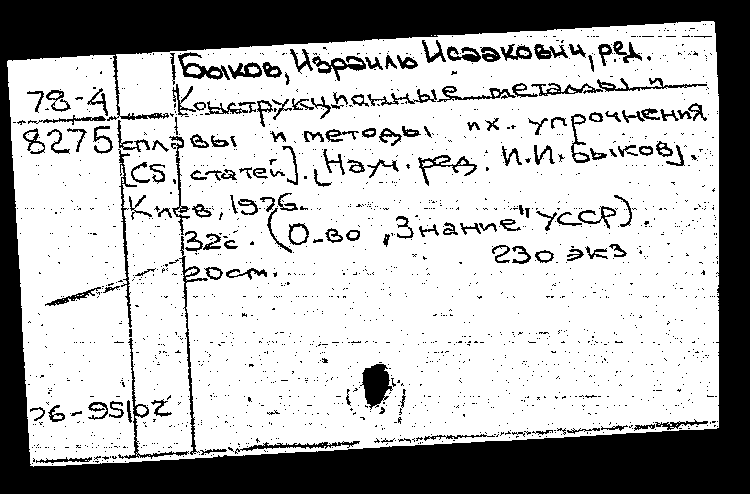 Быков, Израиль Исаакович, ред.
78-4
Конструкционные металлы и
8275
сплавы и методы их упрочнения
[Сб. статей]. [Науч. ред. И.И. Быков].
Киев, 1976.
32с. (О-во „Знание" УССР).
20см. 230 экз.
76-95102